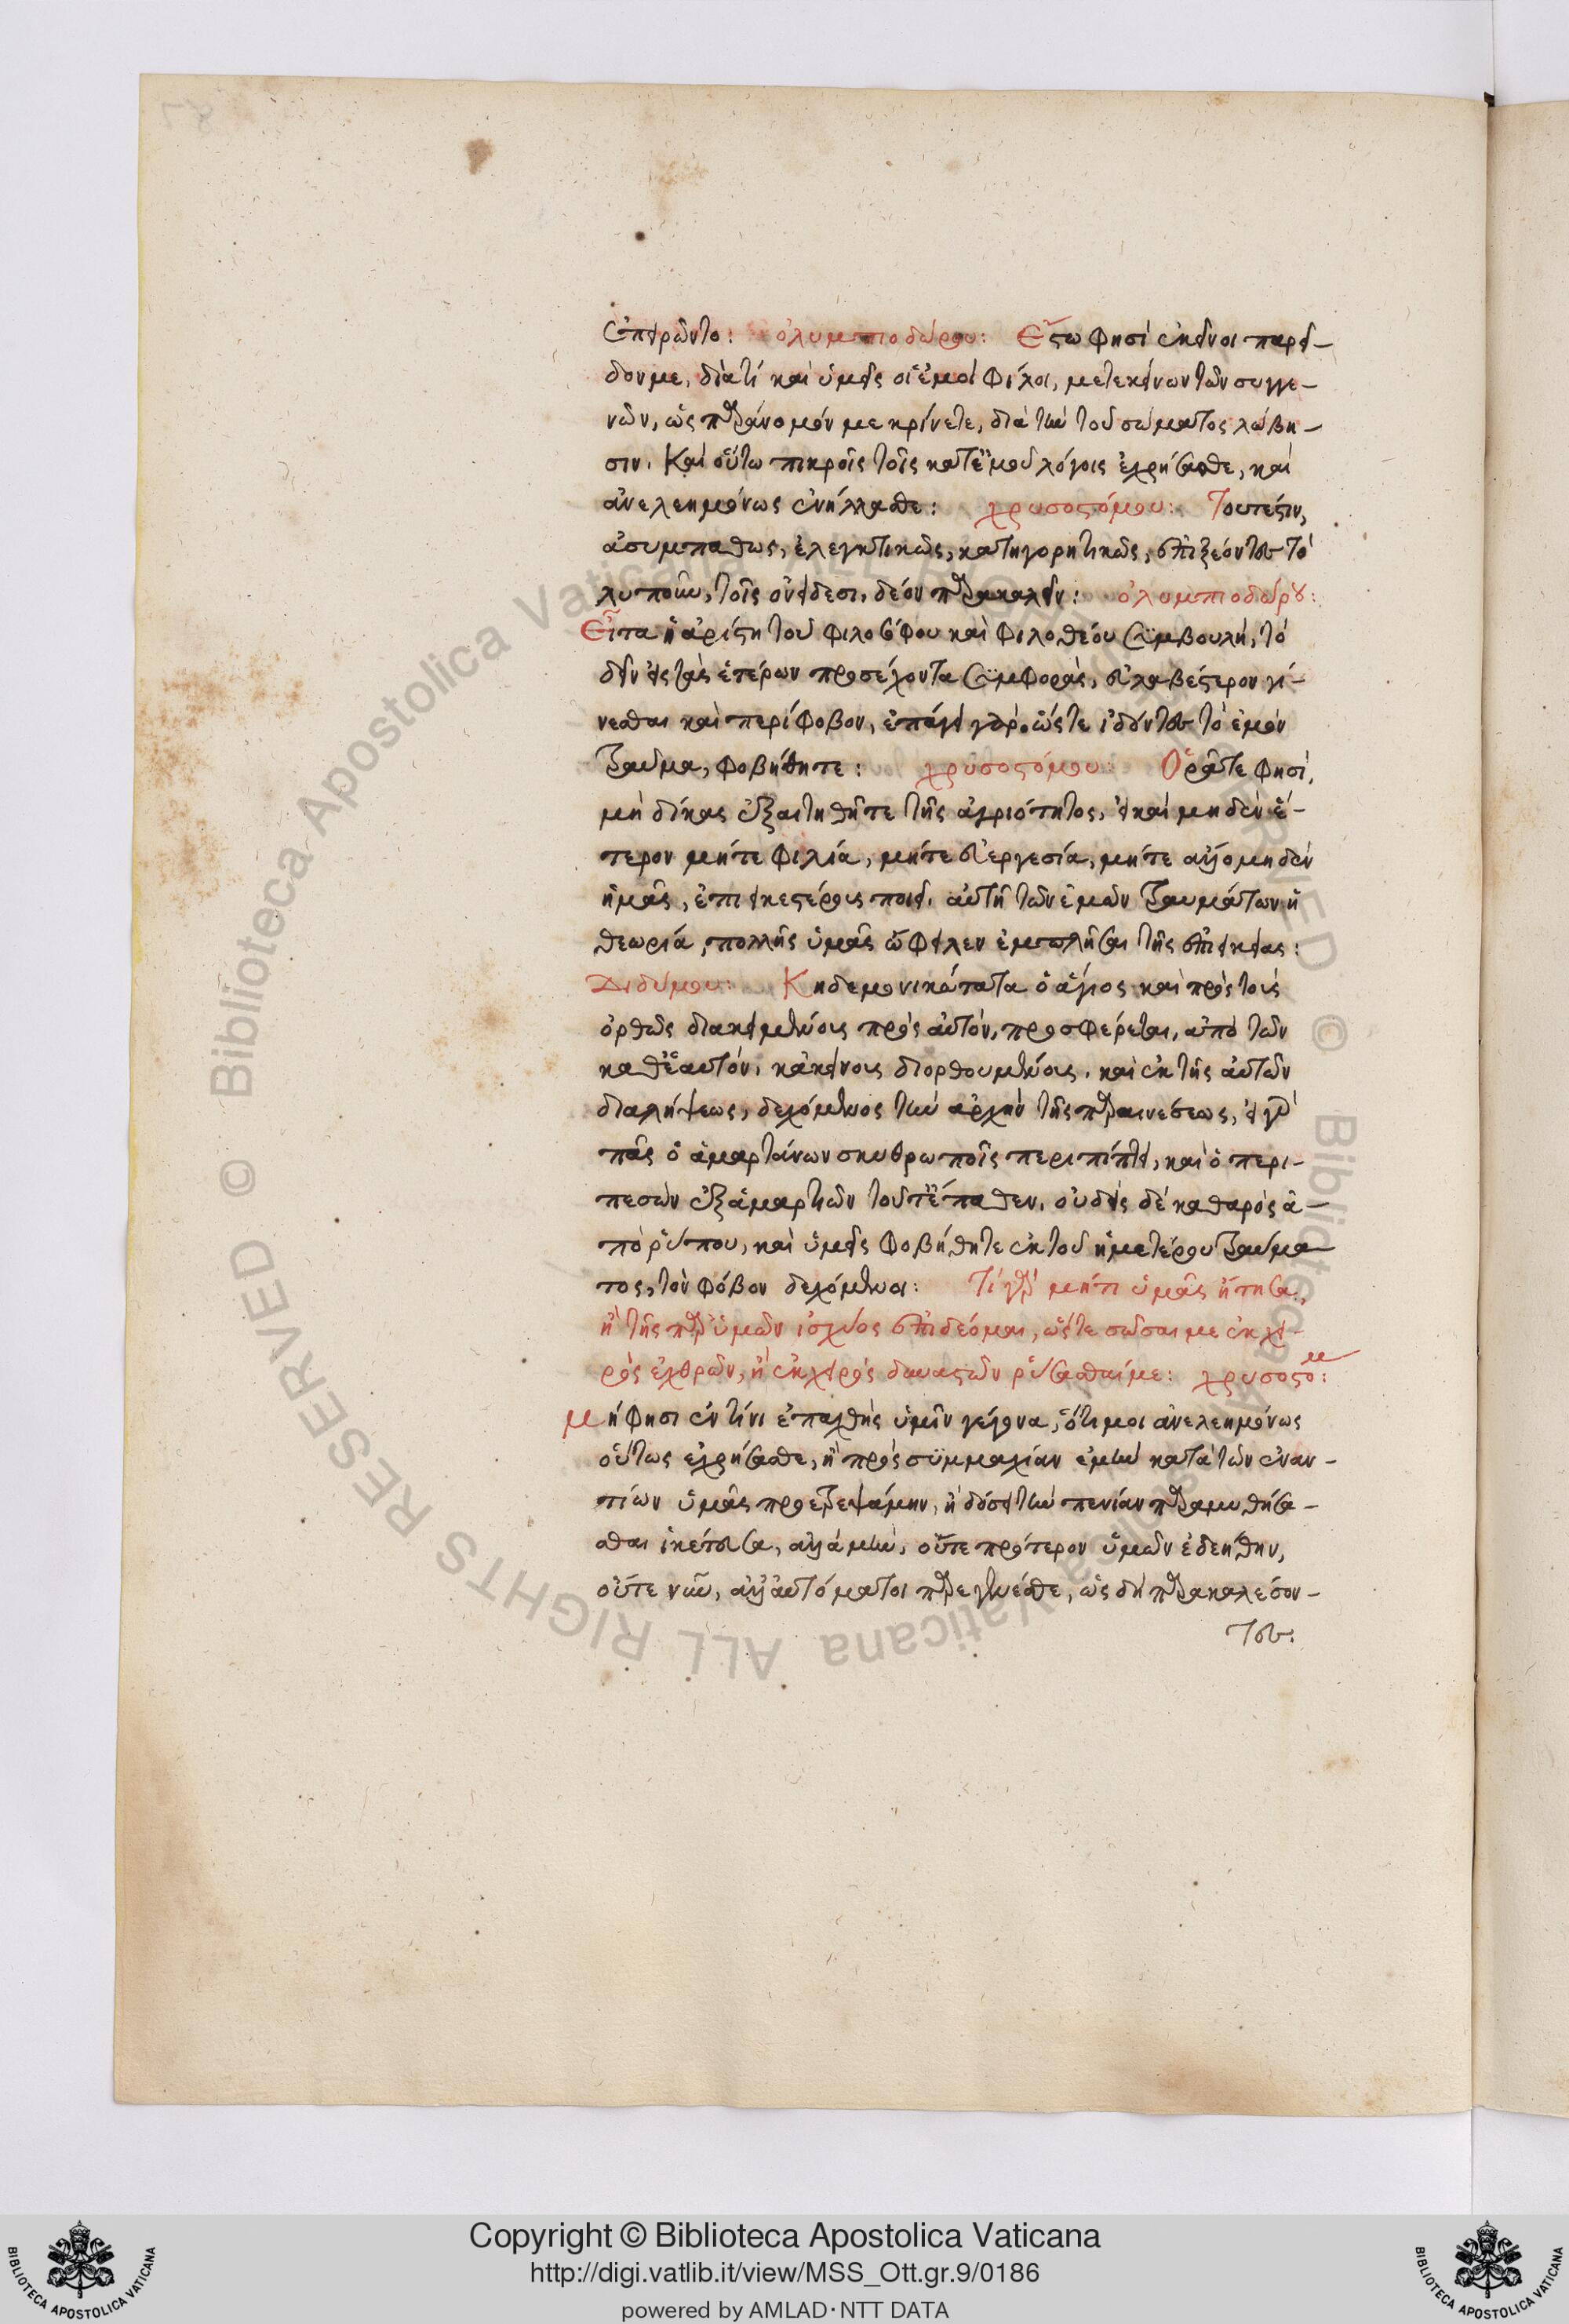 ἐπειρῶντο: ὀλυμπιοδώρου: Ἔστω φησὶ ἐκεῖνοι παρεῖ-
δον με, διατί καὶ ὑμεῖς οἱ ἐμοὶ φίλοι, μετ ἐκείνων τῶν συγγε-
νῶν, ὡς παράνομόν με κρίνετε, διὰ τὴν τοῦ σώματος λώβη-
σιν. Καὶ οὕτω πικροῖς τοῖς κατ ἐμοῦ λόγοις ἐχρήσασθε, καὶ
ἀνελεημόνως ἐνήλλασθε: χρυσοστόμου: Τουτέστιν,
ἀσυμπαθως, ἐλεγκτικῶς, κατηγορητικῶς, ἐπιξέοντες τὸ
λυποῦν, τοῖς ὀνείδεσι, δέον παρακαλεῖν: ὀλυμπιοδώρου:
Εἶτα ἡ ἀρίστη τοῦ φιλοσόφου καὶ φιλοθέου συμβουλή, τὸ
δεῖν εἰς τὰς ἑτέρων προσέχοντα συμφορὰς, εὐλαβέστερον γί-
νεσθαι καὶ περίφοβον, ἐπάγει γάρ. ὥστε ἰδόντες τὸ ἐμὸν
τραῦμα, φοβήθητε: χρυσοστόμου: Ὁρᾶτε φησὶ,
μὴ δίκας ἐξαιτηθῆτε τῆς ἀγριότητος, εἰ καὶ μηδὲν ἕ-
τερον μήτε φιλία, μήτε εὐεργεσία, μήτε ἄλλο μηδὲν
ἡμᾶς, ἐπιεικεστέρους ποιεῖ, αὐτὴ τῶν ἐμῶν τραυμάτων ἡ
θεωρία, πολλῆς ὑμᾶς ὤφειλεν ἐμπλῆσαι τῆς ἐπιεικείας:
Διδύμου: Κηδεμονικώτατα ὁ ἅγιος καὶ πρὸς τοὺς
ὀρθῶς διακειμένους πρὸς αὐτόν, προσφέρεται, ἀπὸ τῶν
καθ ἑαυτόν, κἀκείνους διορθουμένους, καὶ ἐκ τῆς αὐτῶν
διαλήψεως, δεχόμενος τὴν ἀρχὴν τῆς παραινέσεως, εἰ γὰρ
πᾶς ὁ ἁμαρτάνων σκυθρωποῖς περιπίπτει, καὶ ὁ περι-
πεσὼν ἐξ ἁμαρτιῶν τοῦτ ἔπαθεν, οὐδεὶς δὲ καθαρὸς ἀ-
πὸ ῥύπου, καὶ ὑμεῖς φοβήθητε ἐκ τοῦ ἡμετέρου τραύμα
τος, τὸν φόβον δεχόμενοι: Τί γὰρ μήτι ὑμᾶς ᾔτησα,
ἢ τῆς παρ ὑμῶν ἰσχύος ἐπιδέομαι, ὥστε σῶσαι με ἐκ χει-
ρὸς ἐχθρῶν, ἢ ἐκ χειρὸς δυναστῶν ῥύσασθαί με: χρυσοστόμ:
Μή φησι ἔν τινι ἐπαχθὴς ὑμῖν γέγονα, ὅτι μοι ἀνελεημόνως
οὕτως ἐχρήσασθε, ἢ πρὸς συμμαχίαν ἐμὴν κατὰ τῶν ἐναν-
τίων ὑμᾶς προετρεψάμην, ἢ δόσει τὴν πενίαν παραμυθήσα-
σθαι ἱκέτευσα, ἀλλὰ μὴν, οὔτε πρότερον ὑμῶν ἐδεήθην,
οὔτε νῦν, ἀλλ αὐτόματοι παρεγένεσθε, ὡς δὴ παρακαλέσον-
τες.
Copyright © Biblioteca Apostolica Vaticana
http://digi.vatlib.it/view/MSS_Ott.gr.9/0186
powered by AMLAD·NTT DATA